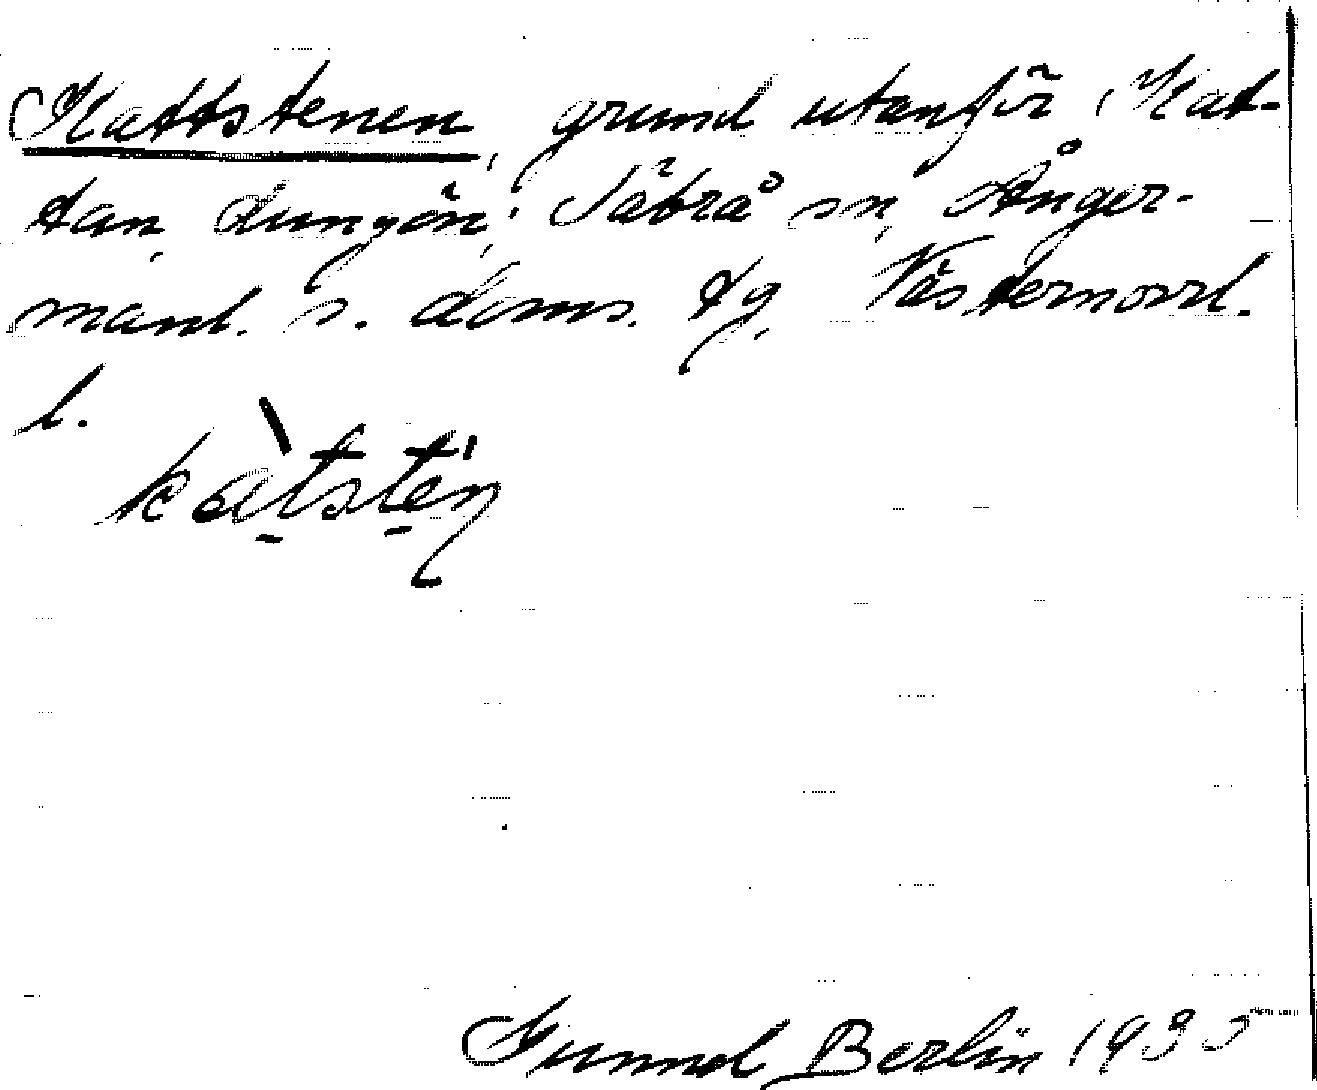 Kattstenen, grund utanför Kat-
tan, Lungön, Säbrå sn, Ånger-
manl. s. doms. tg, Västernorrl.
l.
kàtstén
Gunnel Berlin 193